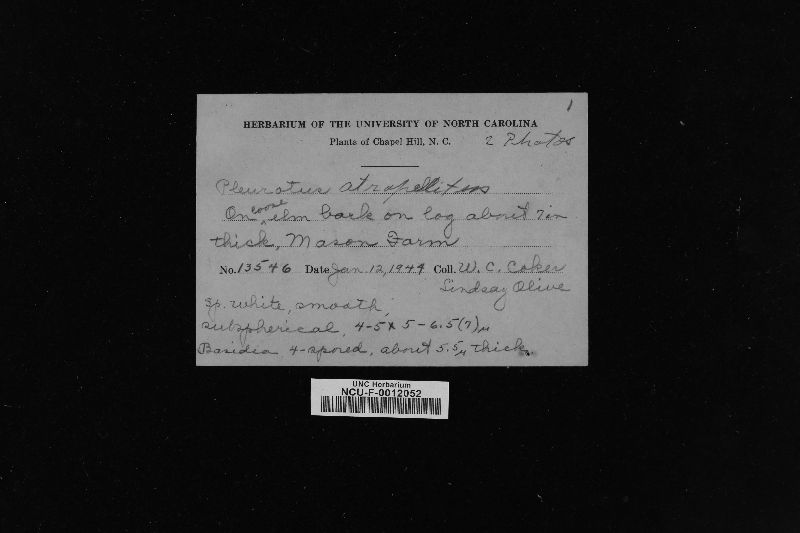 1
HERBARIUM OF THE UNIVERSITY OF NORTH CAROLINA
Plants of Chapel Hill, N. C. 2 Photos
Pleurotus atropellitus
On loose elm bark on log about 7 in
thick, Mason Farm
No. 13546 Date Jan. 12, 1944 Coll. W. C. Coker
Lindsay Olive
Sp. white, smooth,
subspherical, 4-5 x 5-6.5(7)µ
Basidia 4-spored, about 5.5µ thick.
UNC Herbarium
NCU-F-0012052